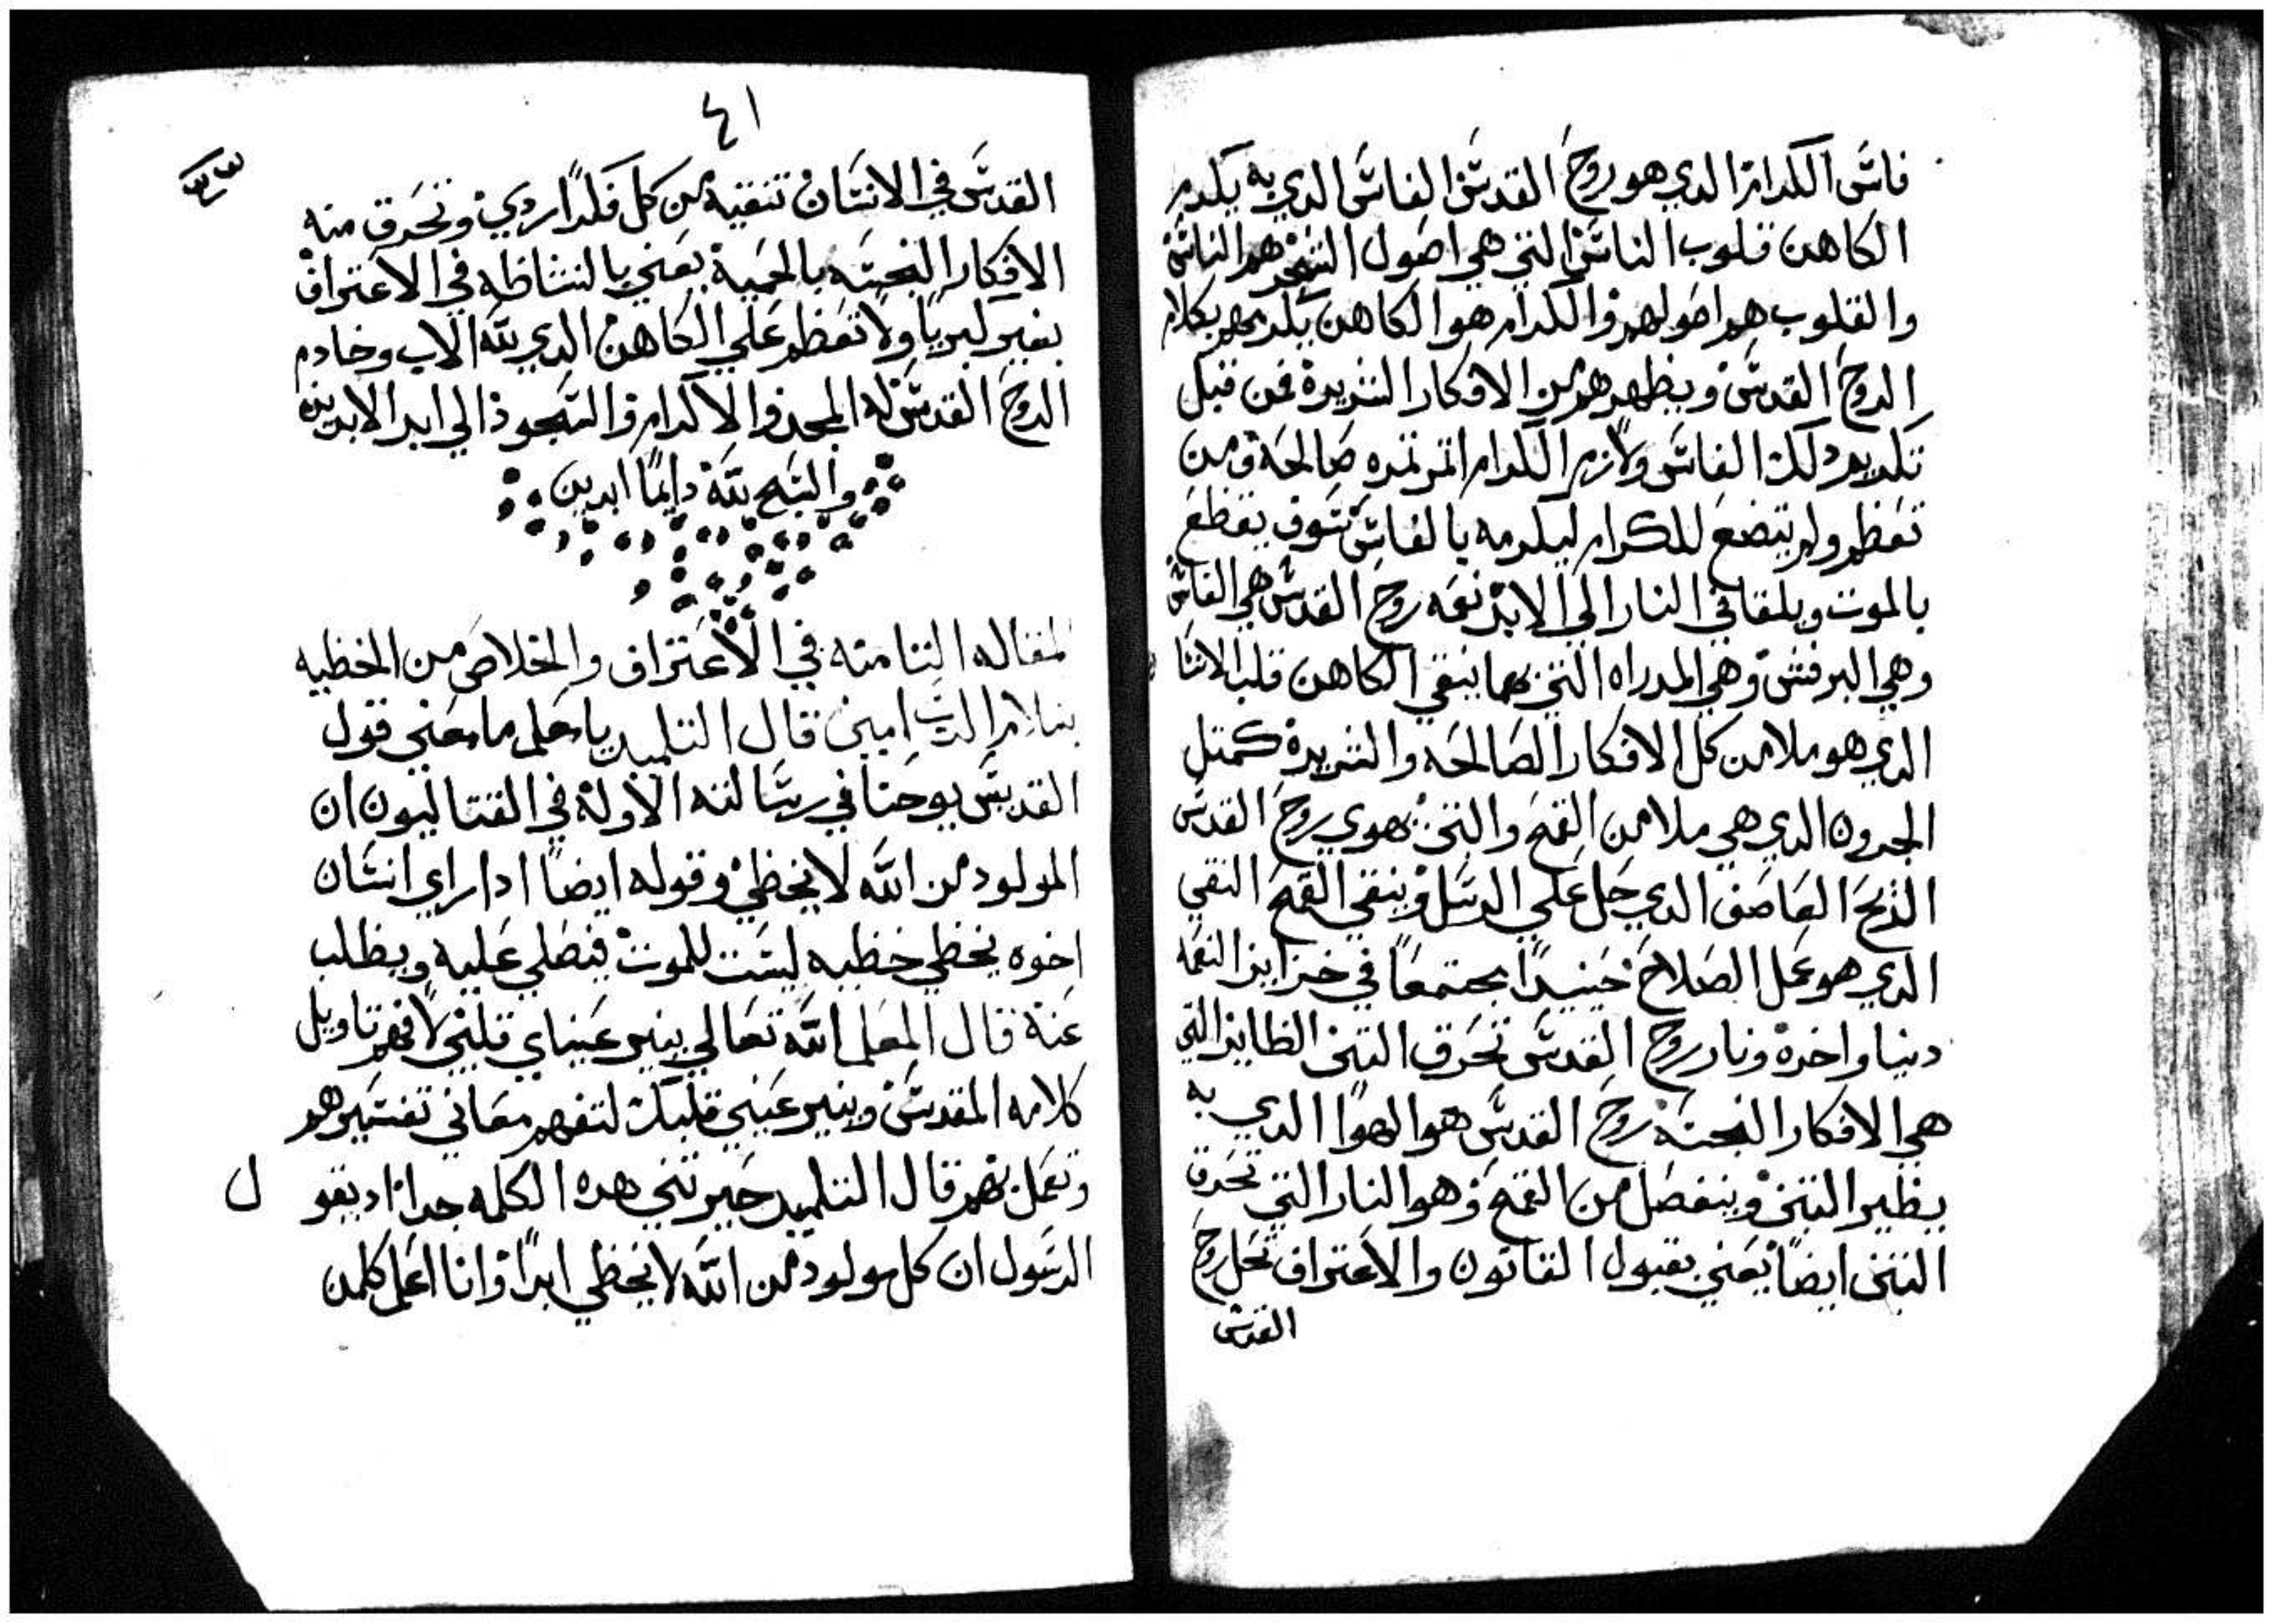 فاس الكرام الدي هو روح القدس الفاس الدي به يكرم
الكاهن قلوب الناس التي هي اصول الشجر هم الناس
والقلوب هم اصولهم والكرام هو الكاهن يكرمهم بكلام
الروح القدس ويطهرهم من الافكار الشريرة فمن قبل
تكريم دلك الفاس ولازم الكرام اتمر تمره صالحة ومن
تعظم ولم يتضع للكرام ليكرمه بالفاس سوف يقطع
بالموت ويلقا في النار الي الابد نعمه روح القدس هي الفاس
وهي الرفش وهي المدراه التي بها ينقي الكاهن قلب الانسا
الدي هو ملا من كل الافكار الصالحه والشريرة كمتل
الجرون الدي هي ملا من القمح والتبن هوي روح القدس
الريح العاصف الدي حل علي الرسل وينقي القمح النقي
الدي هو عمل الصلاح حينيدا مجتمعا في خزاين النعمه
دنيا واخرة ونار روح القدس تحرق التبن الطاير التي
هي الافكار النجسة روح القدس هو الهوا الدي به
يطير التبن وينفصل من القمح وهو النار التي تحرق
التبن ايضا يعني بقبول القانون والاعتراف تحل روح
القدس
٤١
القدس في الانسان تنقيه من كل فكر ردي وتحرق منه
الافكار النجسه بالحمية يعني بالنشاطه في الاعتراف
بغير كبريا ولا تعظم علي الكاهن الدي لله الاب وخادم
الروح القدس له المجد والاكرام والسجود الي ابد الابدين
والسبح لله دايما ابدين
المقاله التامنه في الاعتراف والخلاص من الخطيه
بسلام الرب امين قال التلميد يا معلم ما معني قول
القديس يوحنا في رسالته الاولة في القتاليون ان
المولود من الله لا يخطي وقوله ايضا ادا راي انسان
اخوه يخطي خطيه ليست للموت فيصلي عليه ويطلب
عنه قال المعلم الله تعالي ينير عيناي قلبي لافهم تاويل
كلامه المقدس وينير عيني قلبك لتفهم معاني تفسيرهم
وتعمل بهم قال التلميد حيرتني هده الكلمه جدا اد يقو ل
الرسول ان كل مولود من الله لا يخطي ابدا وانا اعلم كلمن